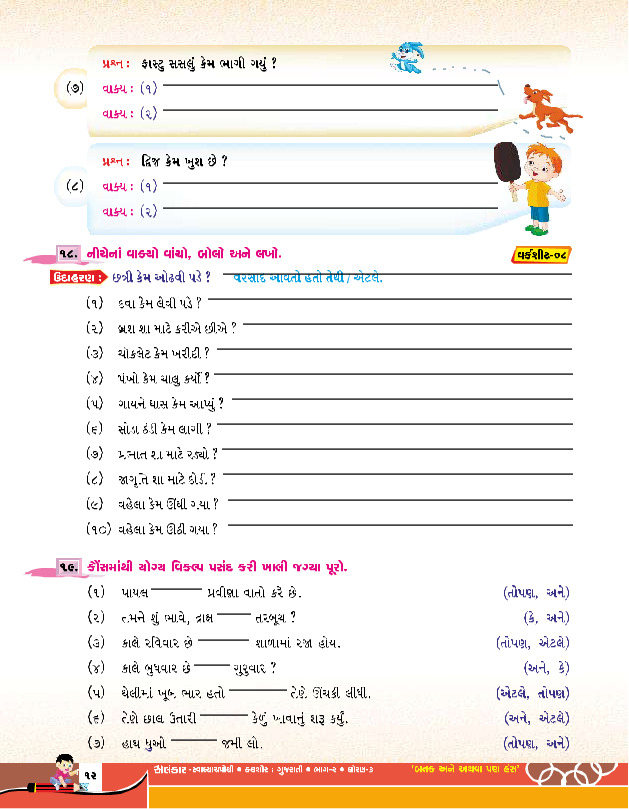 પ્રશ્ન : ફાસ્ટુ સસલું કેમ ભાગી ગયું ?
(૭) વાક્ય : (૧)
વાક્ય : (૨)
પ્રશ્ન : દ્વિજ કેમ ખુશ છે ?
(૮) વાક્ય : (૧)
વાક્ય : (૨)
૧૮. નીચેનાં વાક્યો વાંચો, બોલો અને લખો. વર્કશીટ-૦૮
ઉદાહરણ : છત્રી કેમ ઓઢવી પડે ? વરસાદ આવતો હતો તેથી / એટલે.
(૧) દવા કેમ લેવી પડે ?
(૨) બ્રશ શા માટે કરીએ છીએ ?
(૩) ચોકલેટ કેમ ખરીદી ?
(૪) પંખો કેમ ચાલુ કર્યો ?
(૫) ગાયને ઘાસ કેમ આપ્યું ?
(૬) સોડા ઠંડી કેમ લાગી ?
(૭) પ્રભાત શા માટે રડ્યો ?
(૮) જાગૃતિ શા માટે દોડી ?
(૯) વહેલા કેમ ઊંઘી ગયા ?
(૧૦) વહેલા કેમ ઊઠી ગયા ?
૧૯. કૌંસમાંથી યોગ્ય વિકલ્પ પસંદ કરી ખાલી જગ્યા પૂરો.
(૧) પાયલ પ્રવીણા વાતો કરે છે. (તોપણ, અને)
(૨) તમને શું ભાવે, દ્રાક્ષ તરબૂચ ? (કે, અને)
(૩) કાલે રવિવાર છે શાળામાં રજા હોય. (તોપણ, એટલે)
(૪) કાલે બુધવાર છે ગુરુવાર ? (અને, કે)
(૫) થેલીમાં ખૂબ ભાર હતો તેણે ઊંચકી લીધી. (એટલે, તોપણ)
(૬) તેણે છાલ ઉતારી કેળું ખાવાનું શરૂ કર્યું. (અને, એટલે)
(૭) હાથ ધુઓ જમી લો. (તોપણ, અને)
૧૨ અલંકાર -સ્વાધ્યાયપોથી • કલશોર : ગુજરાતી • ભાગ-૨ • ધોરણ-૩ 'બતક અને અથવા પણ હંસ'